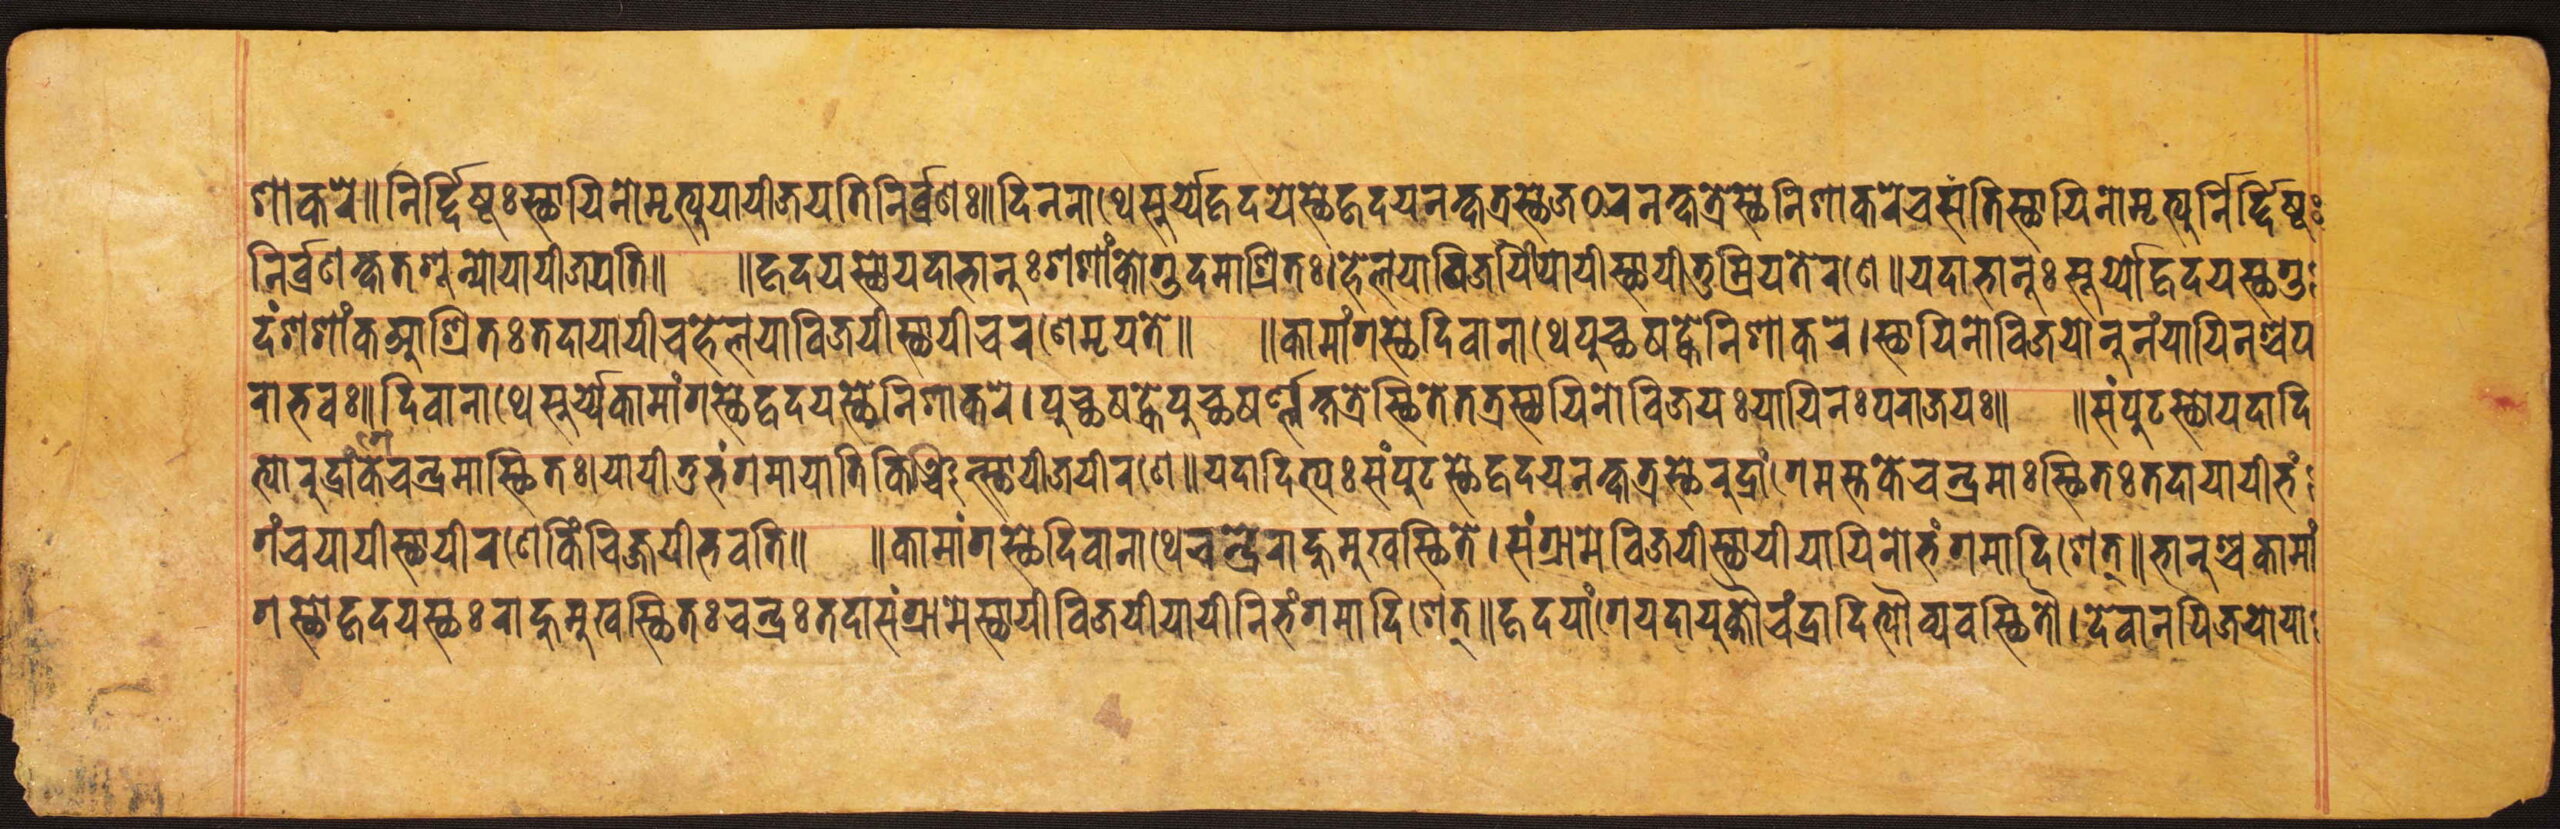 शाकरे॥निर्द्दिष्टःस्थायिनोमृत्युयायीजयतिनिर्व्रणः॥दिननाथेसूर्य्येहृदयेस्थेहृदयनक्षत्रस्थेजठरनक्षत्रेस्थेनिशाकरेचसंतिस्थायिनोमृत्युर्निर्द्दिष्टः
निर्व्रणक्षतशून्योयायीजयति॥ ॥हृदयस्थोयदाभानुःशशांकोगुदमाश्रितः।हेलयाविजयीयायीस्थायीतुम्रियतेरणे॥यदाभानुःसूर्य्योहृदयस्थगु
दंशशांकआश्रितःतदायायीचहेलयाविजयीस्थायीचरणेमृयते॥ ॥कामांगस्थेदिवानाथेपुच्छषट्केनिशाकरे।स्थायिनोविजयोनुनंयायिनश्चप
राभवः॥दिवानाथेसूर्य्येकामांगस्थेहृदयस्थेनिशाकरे।पुच्छषट्केपुच्छषर्ण्णक्षत्रेस्थितेतत्रस्थायिनोविजयःयायिनःपराजयः॥ ॥संपुटस्थोयदादि
त्योरुद्रांगेकेचन्द्रमास्थितः।यायीतुभंगमायातिकिञ्चित्स्थायीजयीरणे॥यदादित्यःसंपुटस्थेहृदयनक्षत्रस्थेरुद्रांगेमस्तकेचन्द्रमाःस्थितःतदायायीभं
गंचयायीस्थायीरणेकिंचिज्जयीभवति॥ ॥कामांगस्थेदिवानाथेचन्द्रेराहुमुखस्थिते।संग्रामेविजयीस्थायीयायिनोभंगमादिशेत्॥भानुश्चकामां
गस्थोहृदयस्थःराहुमुखस्थितःचन्द्रःतदासंग्रामेस्थायीविजयीयायीनिभंगमादिशेत्॥हृदयांगेयदायुक्तौचंद्रादित्यौव्यवस्थितौ।देवानपिजयोया